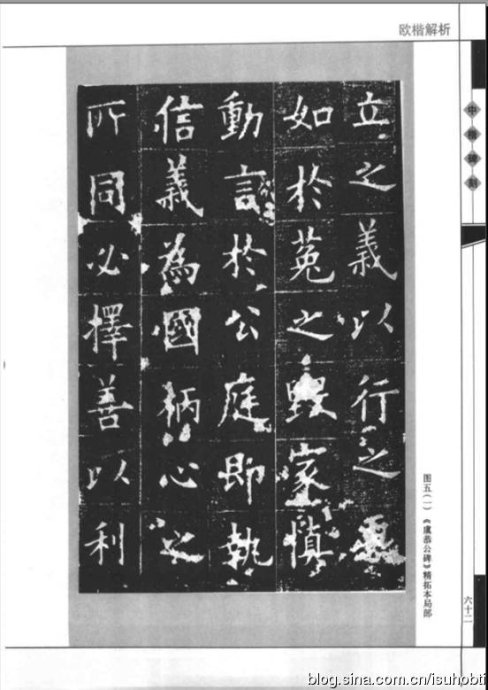 欧楷解析
立之義以行之
如於菟之毀家慎
動言於公庭即執
信義為國柄心之
所同必擇善以利
图五(一) 《虞恭公碑》精拓本局部
六十二
blog.sina.com.cn/isuhobti